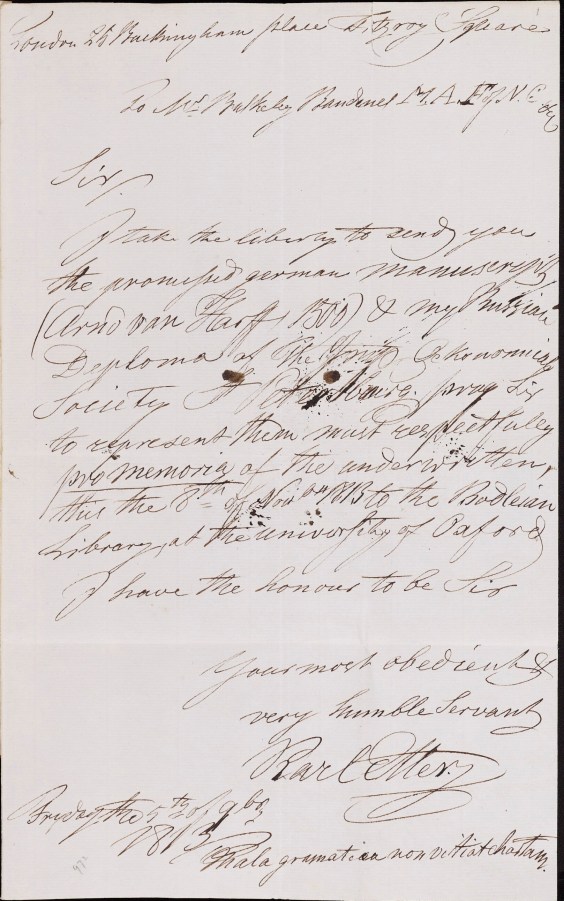 London 26 Buckingham place Fitzroy Square
To Mr Bulkeley Bandinel M. A. F. of N. C. &c
Sir,
I take the liberty to send you
the promissed german manuscript
(Arnd van Harff, 1500) & my Russian
Deploma of the Œkonomical
Society St Petersburg. pray Sir
to represent them most Respectfuley
pro memoria of the underwritten,
this the 8th of 1813 to the Bodleian
Library, at the university of Oxford
I have the honour to be Sir
Your most obedient &
very humble Servant
Karl
the 5th of 9br
1813
Mala gramatica non vitiat chartam.